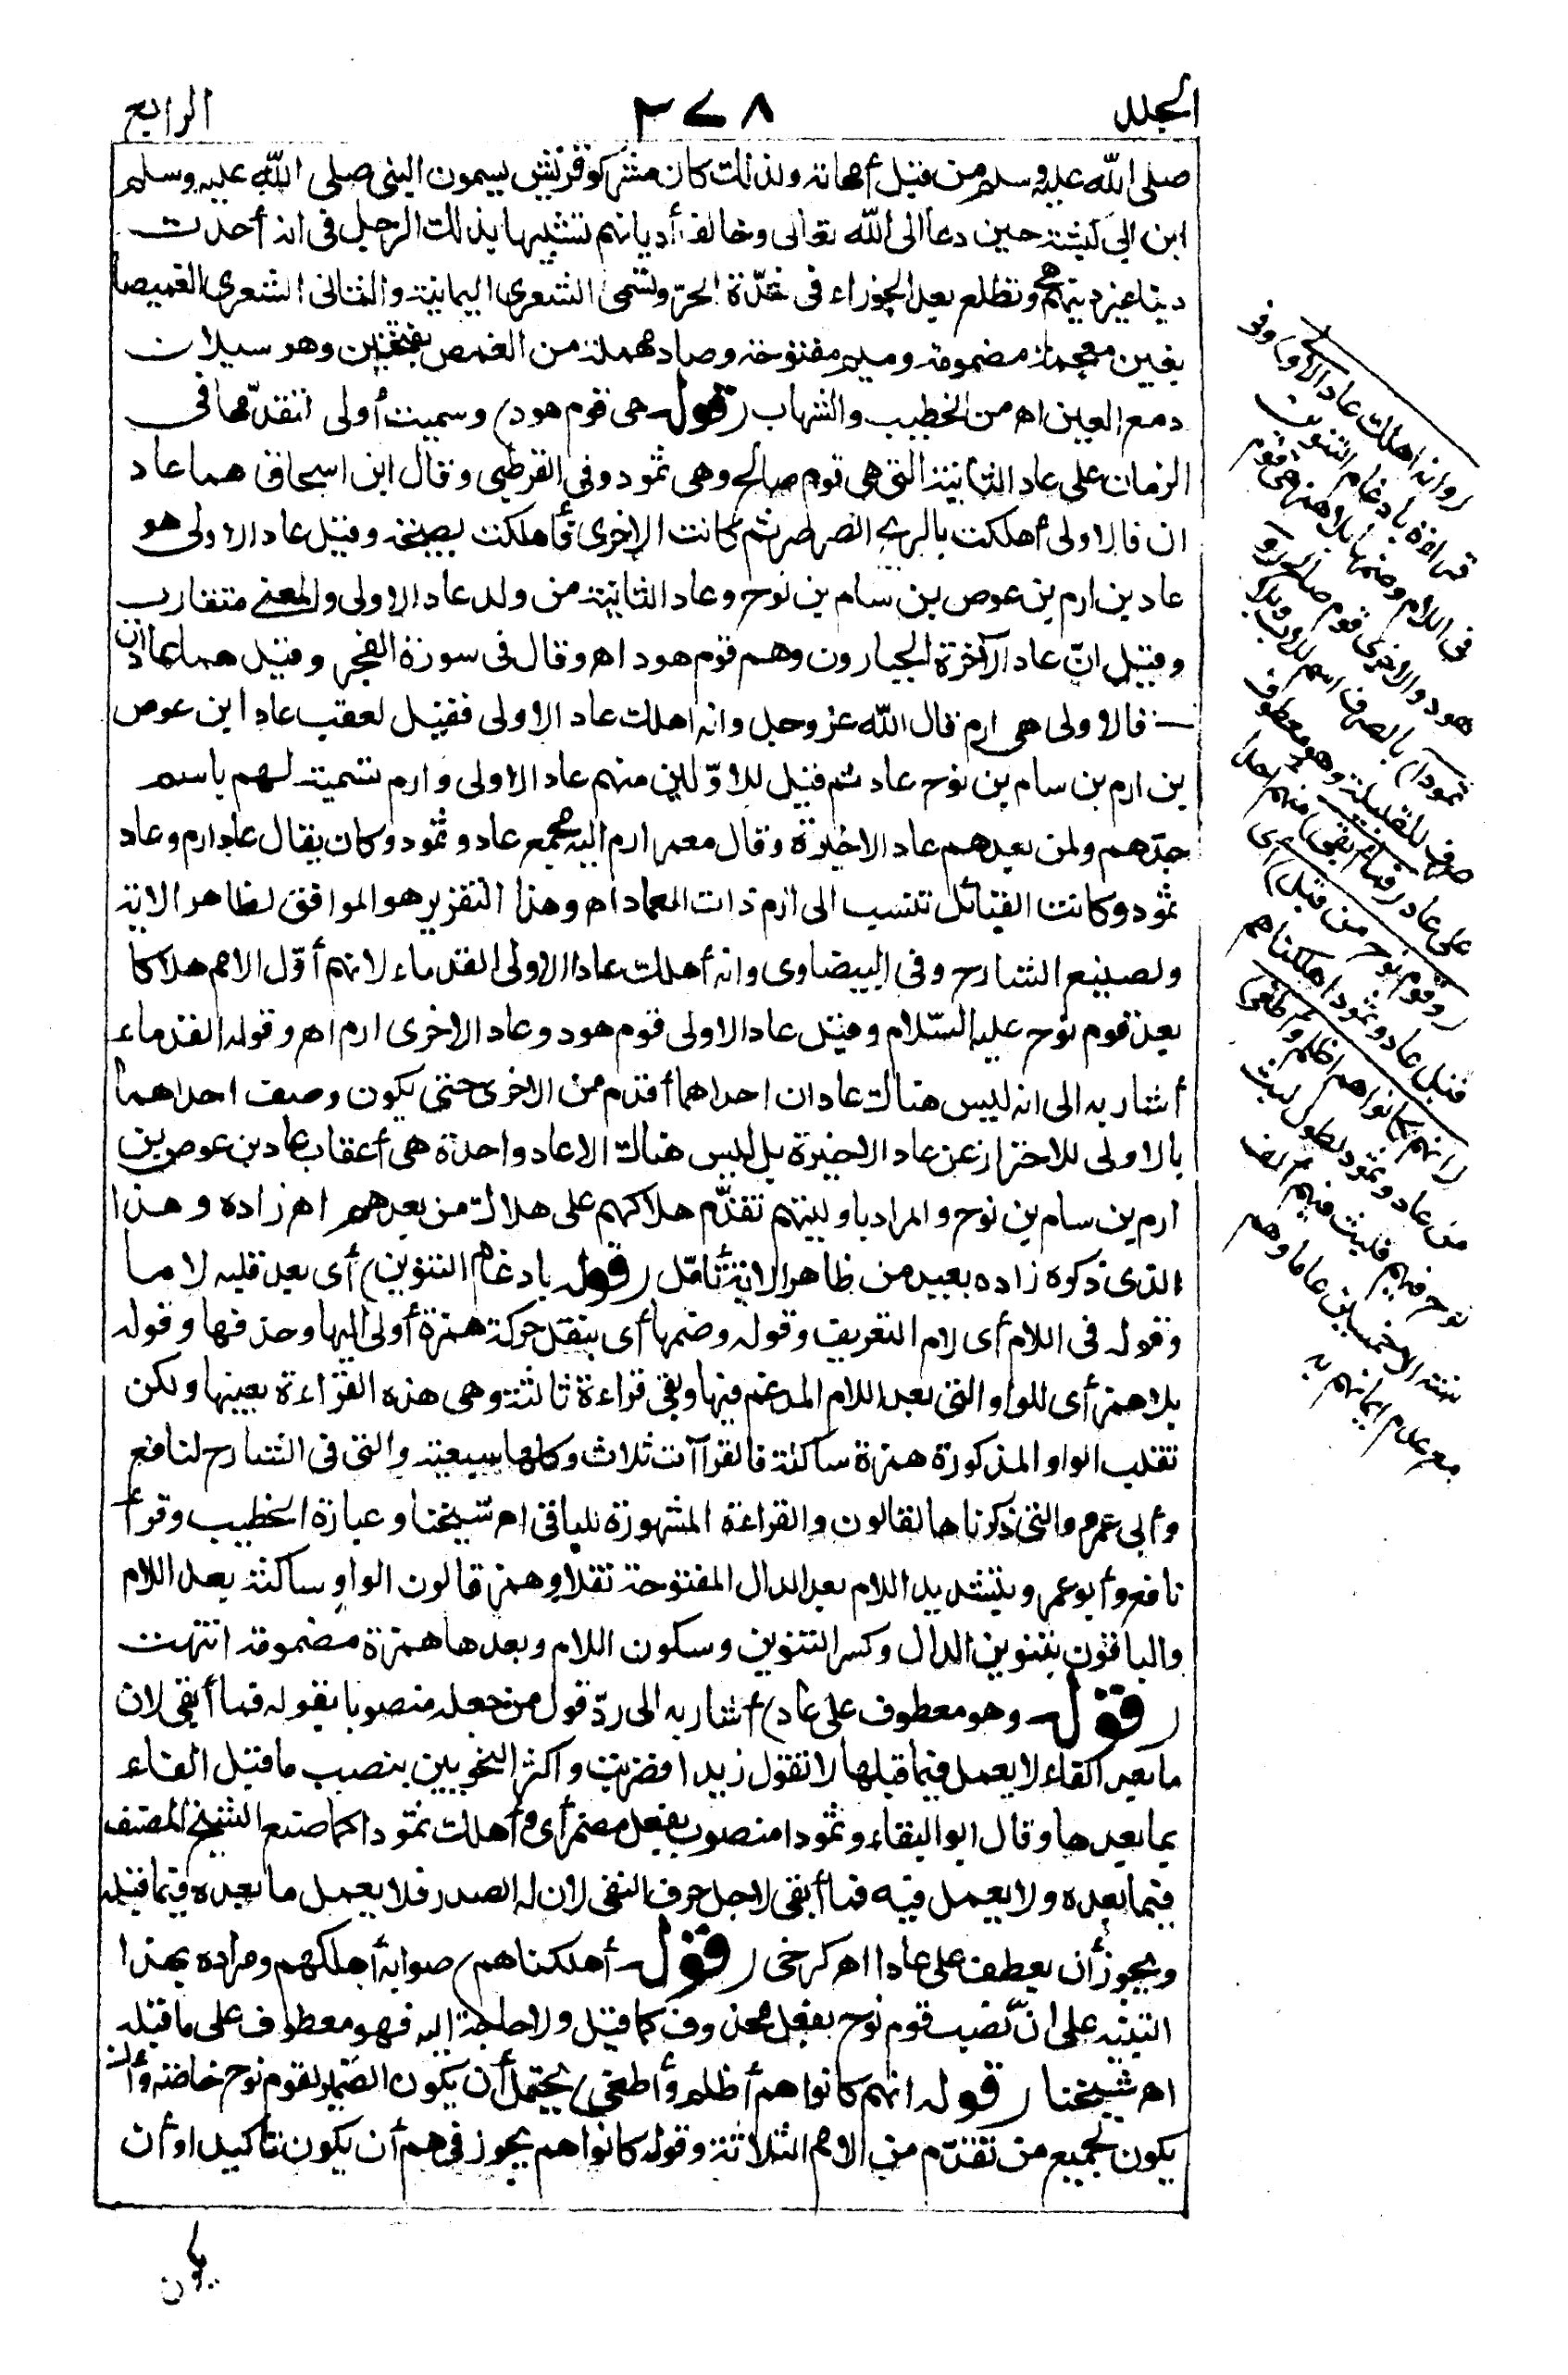 المجلد ٢٧٨ الرابع
صلى الله عليه وسلم من قبل أمهاته ولذلك كان مشركو قريش يسمون النبى صلى الله عليه وسلم
ابن ابى كبشة حين دعا الى الله تعالى وخالف أديانهم تشبيها بذلك الرجل فى انه أحدث
دينا غير دينهم وتطلع بعد الجوزاء فى شدّة الحرّ وتسمى الشعرى اليمانية والثانى الشعرى الغميصا
بغين معجمة مضمومة وميم مفتوحة وصاد مهملة من الغمص بفتحتين وهو سيلان
دمع العين اه من الخطيب والشهاب (قوله هى قوم هود) وسميت أولى لتقدّمها فى
الزمان على عاد الثانية التى هى قوم صالح وهى ثمود وفى القرطبى وقال ابن اسحاق هما عاد
ان فالاولى أهلكت بالريح الصرصر ثم كانت الاخرى فأهلكت بصيحة وقيل عاد الاولى هو
عاد بن ارم بن عوص بن سام بن نوح وعاد الثانية من ولد عاد الاولى والمعنى متقارب
وقيل انّ عاد الآخرة الجبارون وهم قوم هود اه وقال فى سورة الفجر وقيل هما عادان
فالاولى هى ارم قال الله عز وجل وانه اهلك عاد الاولى فقيل لعقب عاد ابن عوص
بن ارم بن سام بن نوح عاد ثم قيل للاوّلين منهم عاد الاولى وارم تسمية لهم باسم
جدّهم ولمن بعدهم عاد الاخيرة وقال معمر ارم اليه مجمع عاد وثمود وكان يقال عاد ارم وعاد
ثمود وكانت القبائل تنتسب الى ارم ذات العماد اه وهذا التقرير هو الموافق لظاهر الاية
ولصنيع الشارح وفى البيضاوى وانه أهلك عادا الاولى القدماء لانهم أوّل الامم هلاكا
بعد قوم نوح عليه السّلام وقيل عاد الاولى قوم هود وعاد الاخرى ارم اه وقوله القدماء
أشار به الى انه ليس هناك عادان احداهما أقدم من الاخرى حتى يكون وصف احداهما
بالاولى للاحتراز عن عاد الاخيرة بل ليس هناك الا عاد واحدة هى أعقاب عاد بن عوص بن
ارم بن سام بن نوح والمراد باوليتهم تقدّم هلاكهم على هلاك من بعدهم اه زاده وهذا
الذى ذكره زاده بعيد من ظاهر الاية تأمّل (قوله بادغام التنوين) أى بعد قلبه لاما
وقوله فى اللام أى لام التعريف وقوله وضمها أى بنقل حركة همزة أولى اليها وحذفها وقوله
بلا همز أى للواو التى بعد اللام المدغم فيها وبقى قراءة ثالثة وهى هذه القراءة بعينها ولكن
تقلب الواو المذكورة همزة ساكنة فالقراآت ثلاث وكلها سبعية والتى فى الشارح لنافع
وأبى عمرو والتى ذكرناها لقالون والقراءة المشهورة للباقى اه شيخنا وعبارة الخطيب وقرأ
نافع وأبو عمرو بتشديد اللام بعد الدال المفتوحة نقلا وهمز قالون الواو ساكنة بعد اللام
والباقون بتنوين الدال وكسر التنوين وسكون اللام وبعدها همزة مضمومة انتهت
(قوله وهو معطوف على عاد) أشار به الى ردّ قول من جعله منصوبا بقوله فما أبقى لان
ما بعد الفاء لا يعمل فيما قبلها لا تقول زيدا فضربت واكثر النحويين بنصب ما قبل الفاء
بما بعدها وقال ابو البقاء وثمودا منصوب بفعل مضمر أى وأهلك ثمودا كما صنع الشيخ المصنف
فيما بعده ولا يعمل فيه فما أبقى لاجل حرف النفى لان له الصدر فلا يعمل ما بعده فيما قبله
ويجوز أن يعطف على عادا اه كرخى (قوله أهلكناهم) صوابه أهلكهم ومراده بهذا
التنبيه على انّ نصب قوم نوح بفعل محذوف كما قيل ولا حاجة اليه فهو معطوف على ما قبله
اه شيخنا (قوله انهم كانوا هم أظلم وأطغى) يحتمل أن يكون الضمير لقوم نوح خاصة وأن
يكون لجميع من تقدّم من الامم الثلاثة وقوله كانوا هم يجوز فى هم أن يكون تأكيدا وأن
يكون
(وانه اهلك عاد الاولى) وفى
قراءة بادغام التنوين
فى اللام وضمها بلا همز هى قوم
هود والاخرى قوم صالح (و
ثمودا) بالصرف اسم للاب وبلا
صرف للقبيلة وهو معطوف
على عاد (فما أبقى) منهم احدا
(وقوم نوح من قبل) اى
قبل عاد وثمود اهلكناهم
(انهم كانوا هم اظلم وأطغى)
من عاد وثمود لطول لبث
نوح فيهم فلبث فيهم الف
سنة الا خمسين عاما وهم
مع عدم ايمانهم به